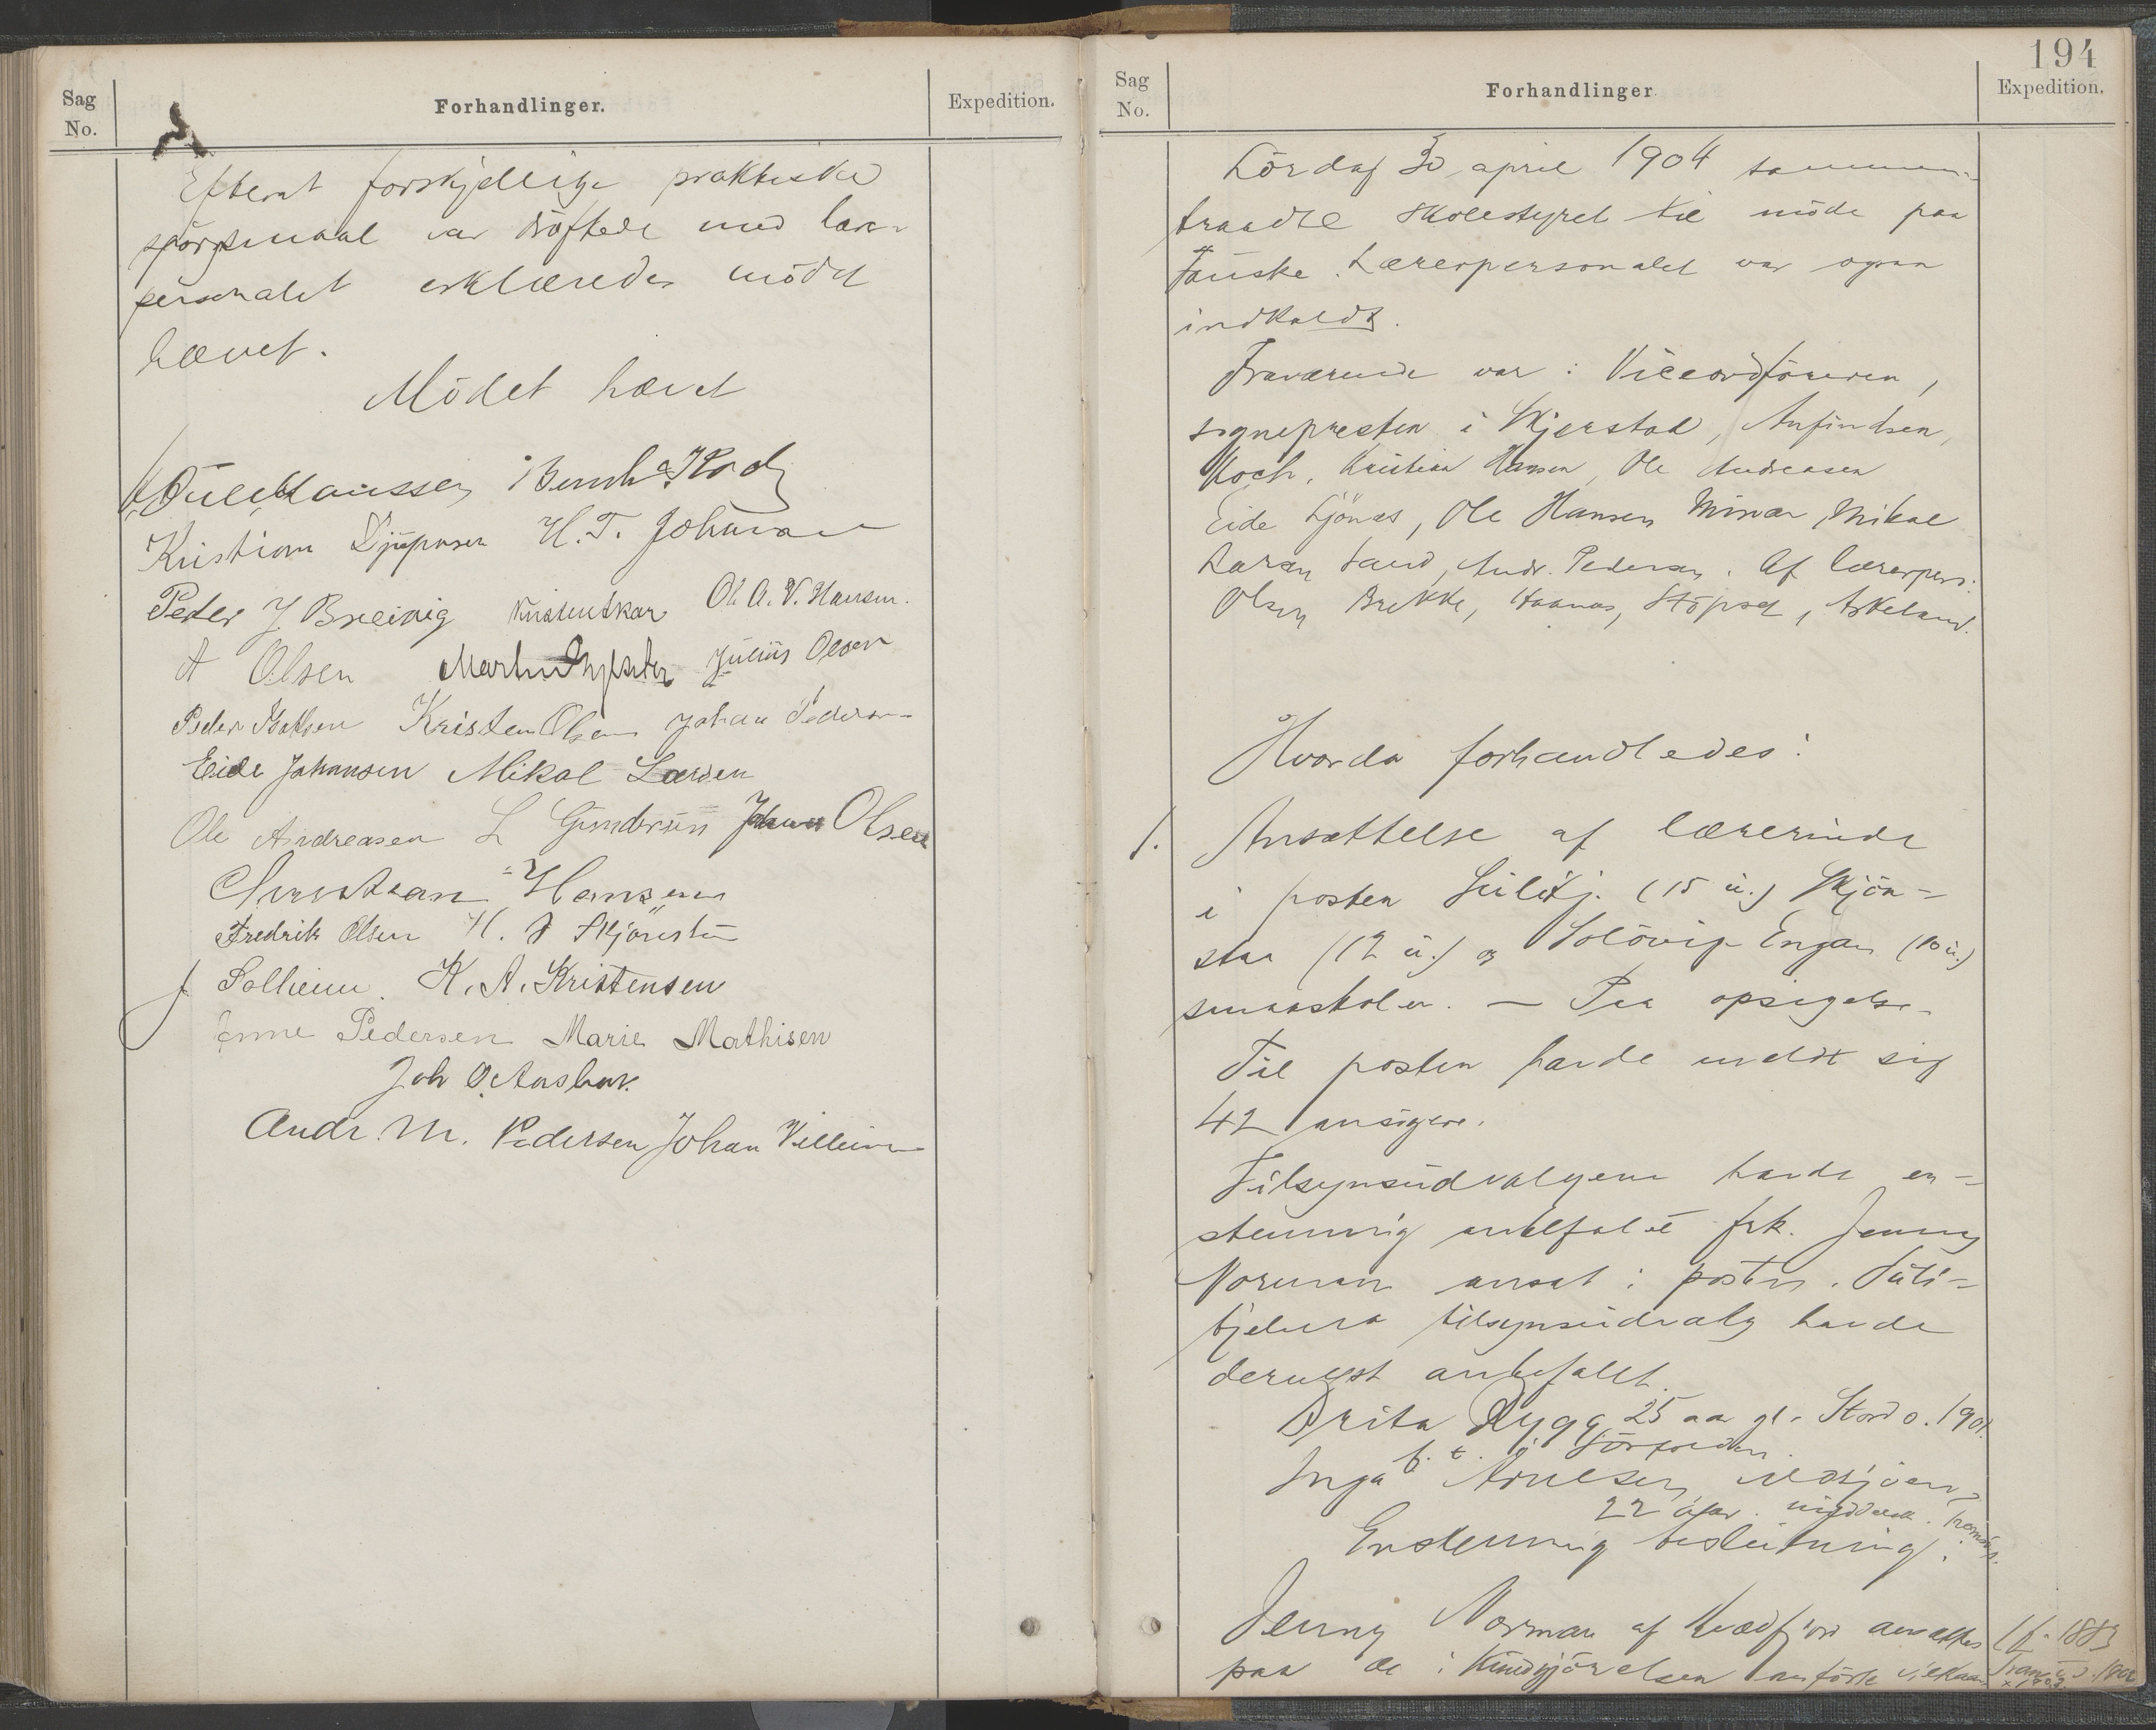 Sag
No.
Forhandlinger.
Expedition.
Efterat forskjellige praktiske
spörgsmaal var dröftede med lærer
personalet erklæredes mödet
hævet.
Mödet hævet
Kristian H. T. Johnsen
Peder J Breivig Ole A. V. Hansen.
A Olsen Martin Julius Olsen
Peder Kristen Olsen Johan Pedersen
Eide Johansen Mikal Larsen
Ole Andreasen L Gundersen Johan Olsen
Christian Hansen
Fredrik Olsen H.
J Sollieim. K. A. Kristensen
Anne Pedersen Marie Mathisen
Joh
Andr. M. Pedersen Johan Velleim
194
Sag
No.
Forhandlinger
Expedition.
Lördag 30 april 1904 sammen-
traadte skolestyret til möde paa
Fauske. Lærerpersonalet var ogsaa
indkaldt.
Fraværende var: Viceordföreren,
sognepresten i Skjerstad, Anfindsen,
Koch, Kristian Hansen, Ole Andreasen
Eide Ljönes, Ole Hansen Misvær, Mikal
Larsen Sand, Andr. Pedersen. Af lærerpers.
Olsen Brekke, Haanæs, Störset, Askeland.
Hvorda forhandledes:
1. Ansættelse af lærerinde
i posten Sulitj. (15 u.) Skjön-
staa (12 u.) og Solövig Engan (10 u.)
smaaskoler. — Paa opsigelse.
Til posten havde meldt sig
42 ansögere.
Tilsynsudvalgene havde en-
stemmig anbefalet frk. Jenny
Norman ansat i posten. Suli-
tjelma tilsynsudvalg havde
dernæst anbefalet
Brita Rygg 25 aa gl. Stord o. 1901.
f. t. Sörfolden.
Inga Arntsen
22 aar.
Enstemmig beslutning:
Jenny Norman af Kvædfjord ansættes
paa de i Kundgjörelsen anförte vilkaar
f. 1883